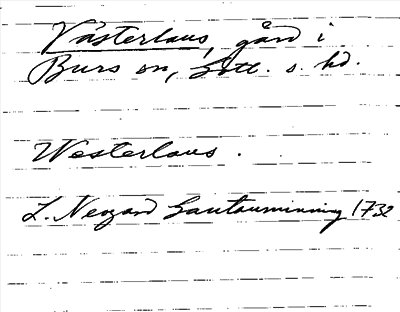 Västerlaus, gård i
Burs sn, Gotl. s. hd.
Westerlaus.
L. Neogard Gautauminning 1732